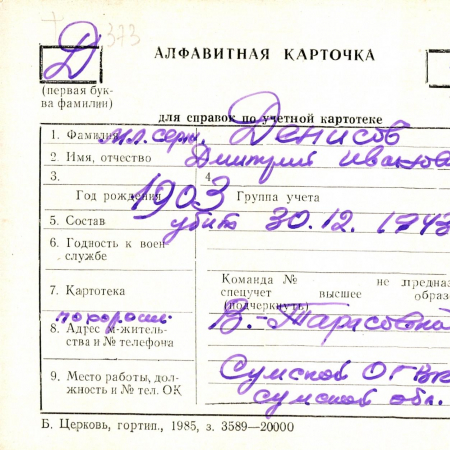 373
Д
АЛФАВИТНАЯ КАРТОЧКА
(первая бук-
ва фамилии)
для справок по учетной картотеке
1. Фамилия мл. серж. Денисов
2. Имя, отчество Дмитрий Иванов
3.
4.
Год рождения 1903 Группа учета
5. Состав убит 30.12.1943
6. Годность к воен
службе
Команда № не предназ
7. Картотека спецучет высшее образ
(подчеркнуть)
похорон.
8. Адрес м-житель-
ства и № телефона
В.-
9. Место работы, дол-
жность и № тел. ОК
Сумской ОГВК
Сумской обл.
Б. Церковь, гортип., 1985, з. 3589—20000